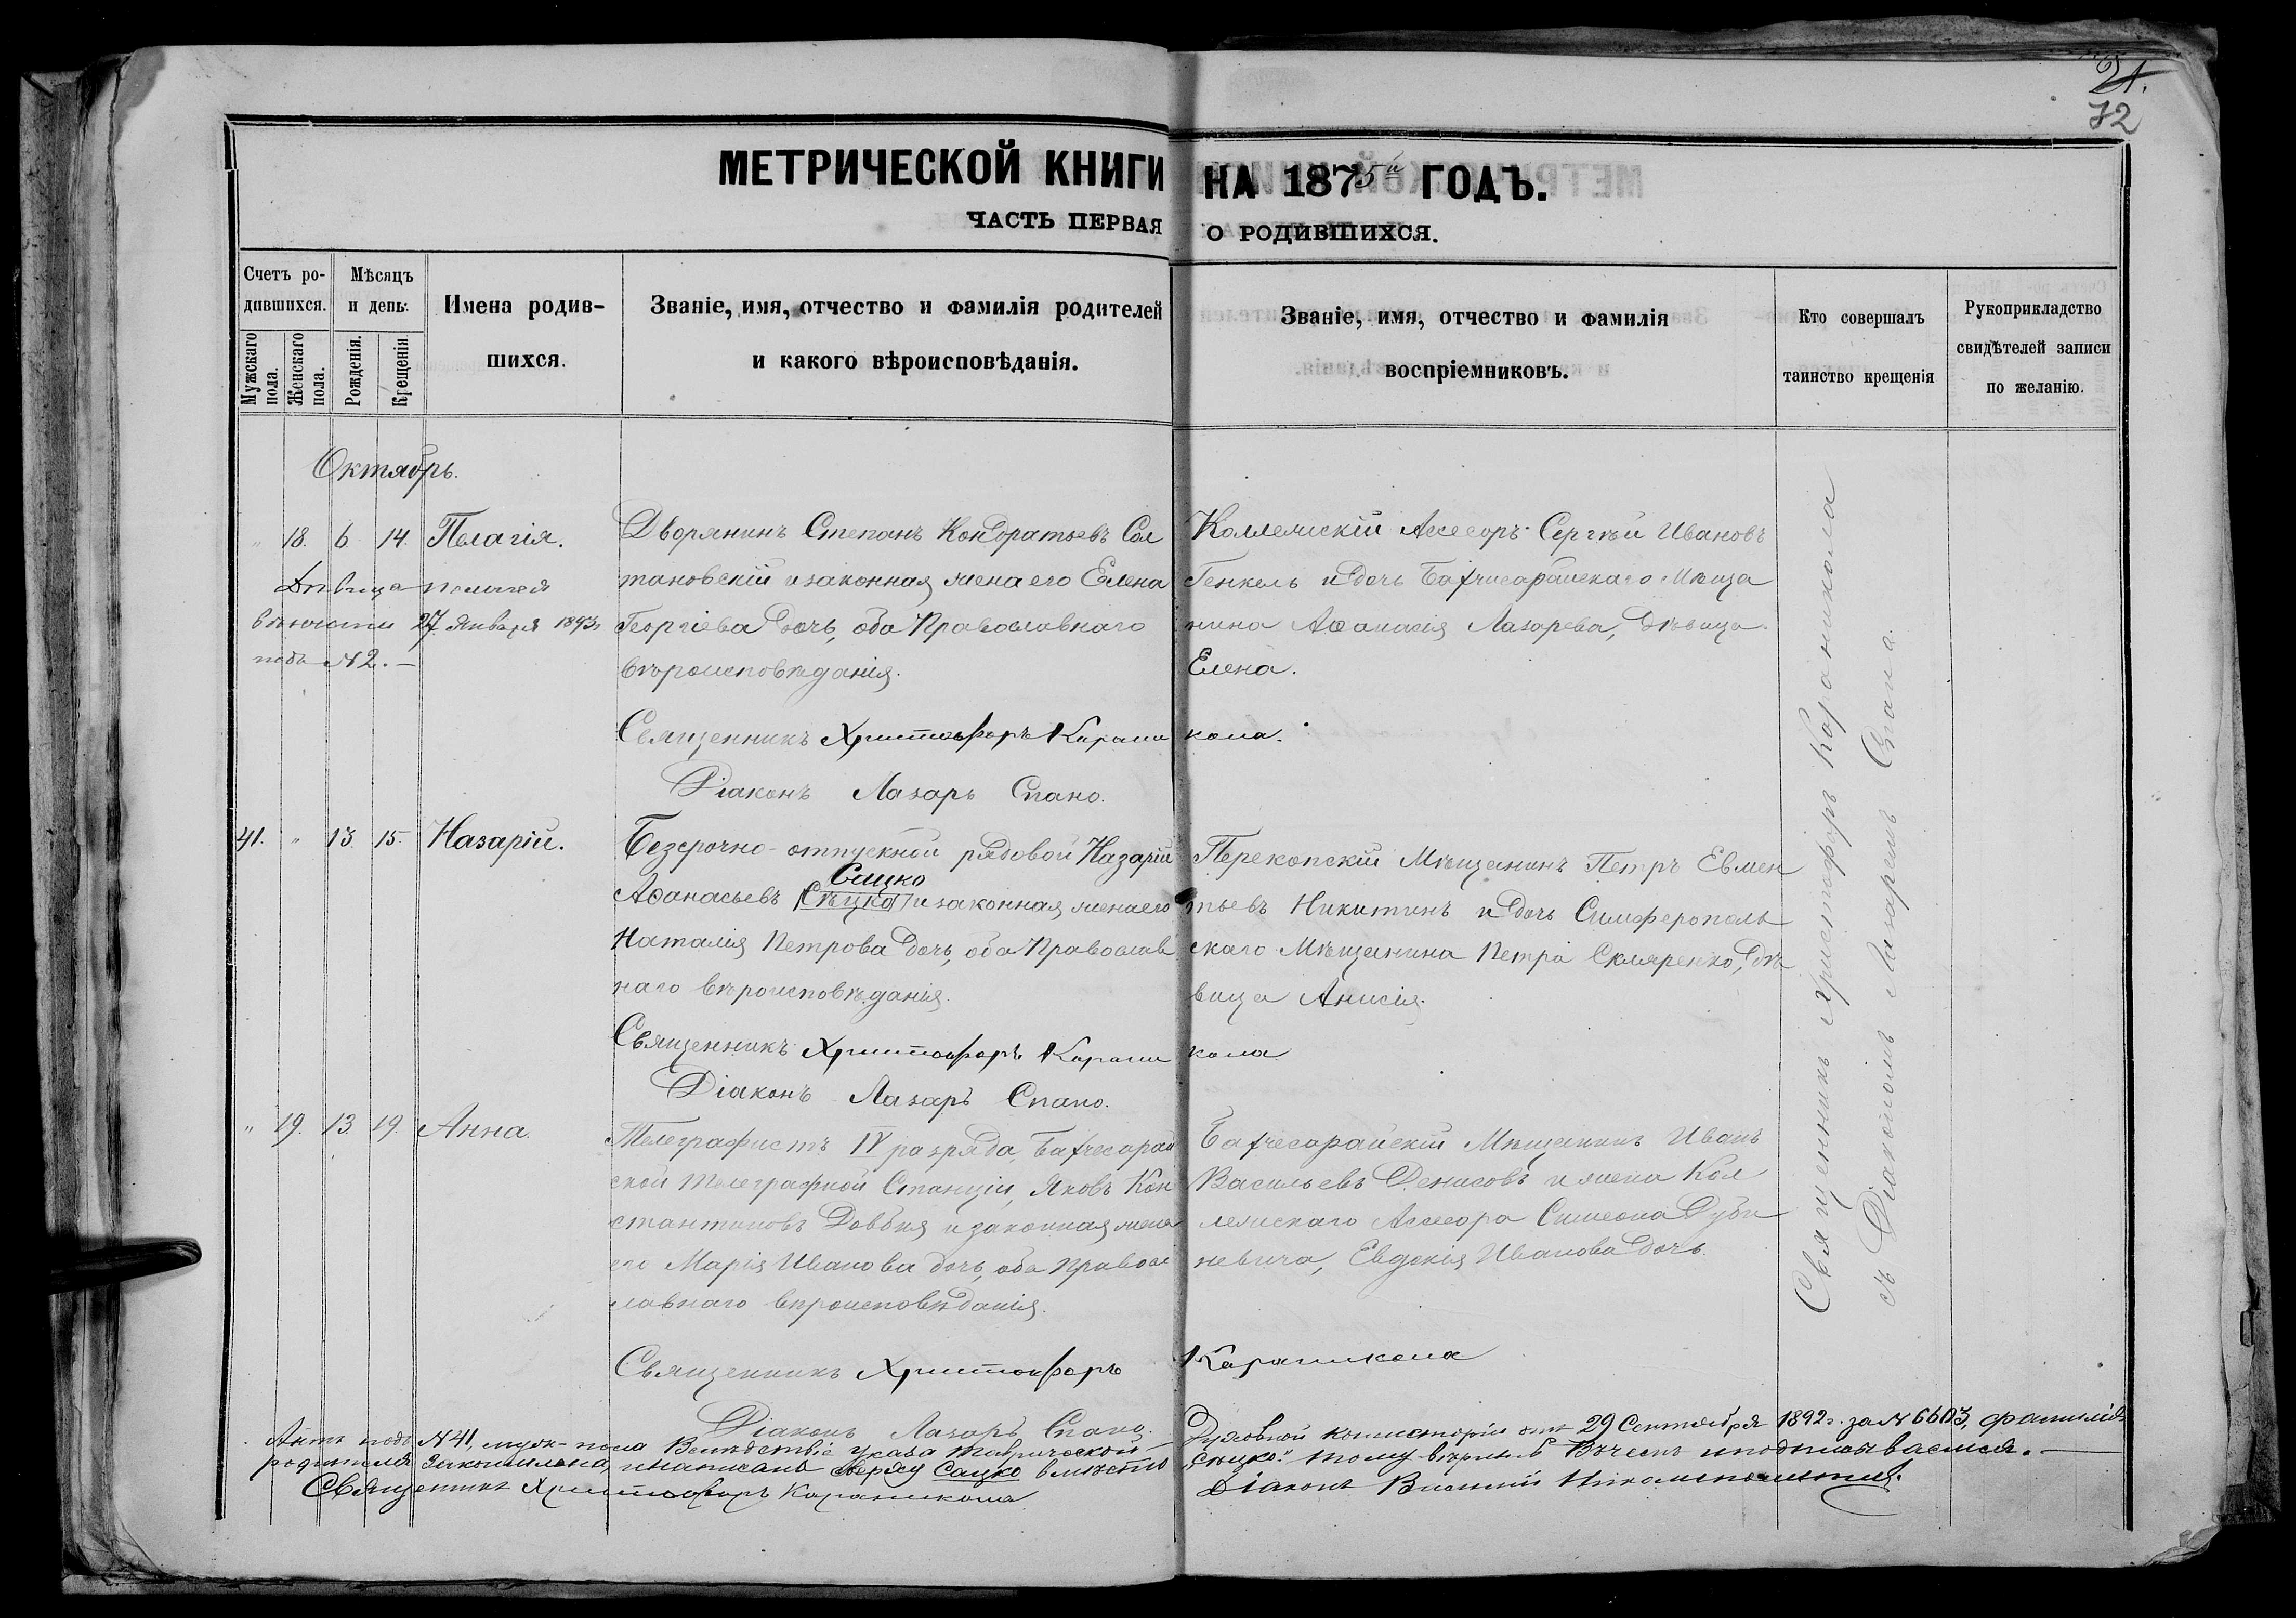 21.
72
МЕТРИЧЕСКОЙ КНИГИ НА 1875й ГОДЪ.
ЧАСТЬ ПЕРВАЯ О РОДИВШИХСЯ.
Счетъ родившихся.
Мужскаго пола.
Женскаго пола.
Мѣсяцъ и день.
Рожденія.
Крещенія.
Имена родившихся.
Званіе, имя, отчество и фамилія родителей
и какого вѣроисповѣданія.
Званіе, имя, отчество и фамилія
воспріемниковъ.
Кто совершалъ
таинство крещенія
Рукоприкладство
свидѣтелей записи
по желанію.
Октябрь.
" 18. 6 14. Пелагія.
Дѣвица Пелагея
вѣнчана 27 Января 1893 г.
подъ N 2. —
Дворянинъ Степанъ Кондратьевъ Сол
тановскій и законная жена его Елена
Георгіева дочь, оба Православнаго
вѣроисповѣданія.
Священникъ Христофоръ Караникола.
Діаконъ Лазарь Спано.
Коллежскій Ассесоръ Сергѣй Ивановъ
Генкель и дочь Бахчисарайскаго Мѣща
нина Аѳанасія Лазарева, дѣвица
Елена.
41. " 13 15. Назарій.
Безсрочно-отпускной рядовой Назарій
Сацко
Аѳанасьевъ (Сѣцко) и законная жена его
Наталія Петрова дочь, оба Православ
наго вѣроисповѣданія.
Священникъ Христофоръ Караникола
Діаконъ Лазарь Спано.
Перекопскій Мѣщанинъ Петръ Евмен
тьевъ Никитинъ и дочь Симферополь
скаго Мѣщанина Петра Скляренко, дѣ
вица Анисія.
" 19. 13. 19. Анна.
Телеграфистъ IV разряда, Бахчесарай
ской Телеграфной Станціи, Яковъ Кон
стантиновъ Довбня и законная жена
его Марія Иванова дочь, оба Правос
лавнаго вѣроисповѣданія.
Священникъ Христофоръ Караникола
Діаконъ Лазарь Спано.
Бахчесарайскій Мѣщанинъ Иванъ
Васильевъ Денисовъ и жена Кол
лежскаго Ассесора Симеона Дуби
невича, Евдокія Иванова дочь.
Священникъ Христофоръ Караникола
съ Діакономъ Лазаремъ Спано.
Актъ подъ N 41, муж-пола Вслѣдствіе указа Таврической Духовной Консисторіи отъ 29 Сентября 1892 г. за N 6603, фамилія
родителя, и написано сверху Сацко вмѣсто "Сѣцко." тому вѣримъ въ чемъ и подписываемся. —
Священникъ Христофоръ Караникола
Діаконъ Василій